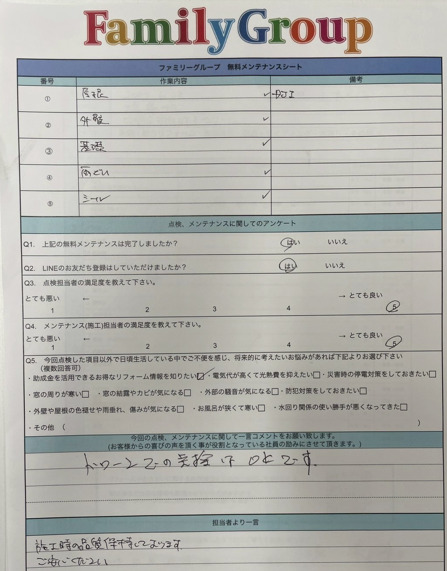 FamilyGroup
ファミリーグループ 無料メンテナンスシート
番号 作業内容 備考
① 屋根 ✓ DJI
② 外壁 ✓
③ 基礎 ✓
④ 雨どい ✓
⑤ シール ✓
点検、メンテナンスに関してのアンケート
Q1. 上記の無料メンテナンスは完了しましたか? はい いいえ
Q2. LINEのお友だち登録はしていただけましたか? はい いいえ
Q3. 点検担当者の満足度を教えて下さい。
とても悪い ← → とても良い
1 2 3 4 5
Q4. メンテナンス(施工)担当者の満足度を教えて下さい。
とても悪い ← → とても良い
1 2 3 4 5
Q5. 今回点検した項目以外で日頃生活している中でご不便を感じ、将来的に考えたいお悩みがあれば下記よりお選び下さい
(複数回答可)
・助成金を活用できるお得なリフォーム情報を知りたい☑ ・電気代が高くて光熱費を抑えたい□ ・災害時の停電対策をしておきたい□
・窓の周りが寒い□ ・窓の結露やカビが気になる□ ・外部の騒音が気になる□ ・防犯対策をしておきたい□
・外壁や屋根の色褪せや雨垂れ、傷みが気になる□ ・お風呂が狭くて寒い□ ・水回り関係の使い勝手が悪くなってきた□
・その他 ( )
今回の点検、メンテナンスに関して一言コメントをお願い致します。
(お客様からの喜びの声を頂く事が役割となっている社員の励みにさせて頂きます。)
ドローンでの点検は OKです。
担当者より一言
施工時の品質保持しております
ご安心ください